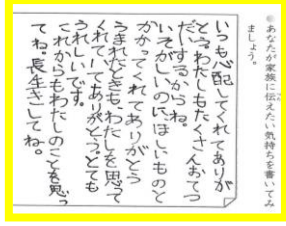 ●あなたが家族に伝えたい気持ちを書いてみ
ましょう。
いつも心配してくれてありが
とう。わたしもたくさんおてつ
だいするからね。
いそがしいのにほしいものと
かかってくれてありがとう
うまれたときもわたしを思って
くれていてありがとうとても
うれしいです。
これからもわたしのことを思っ
てね。長生きしてね。